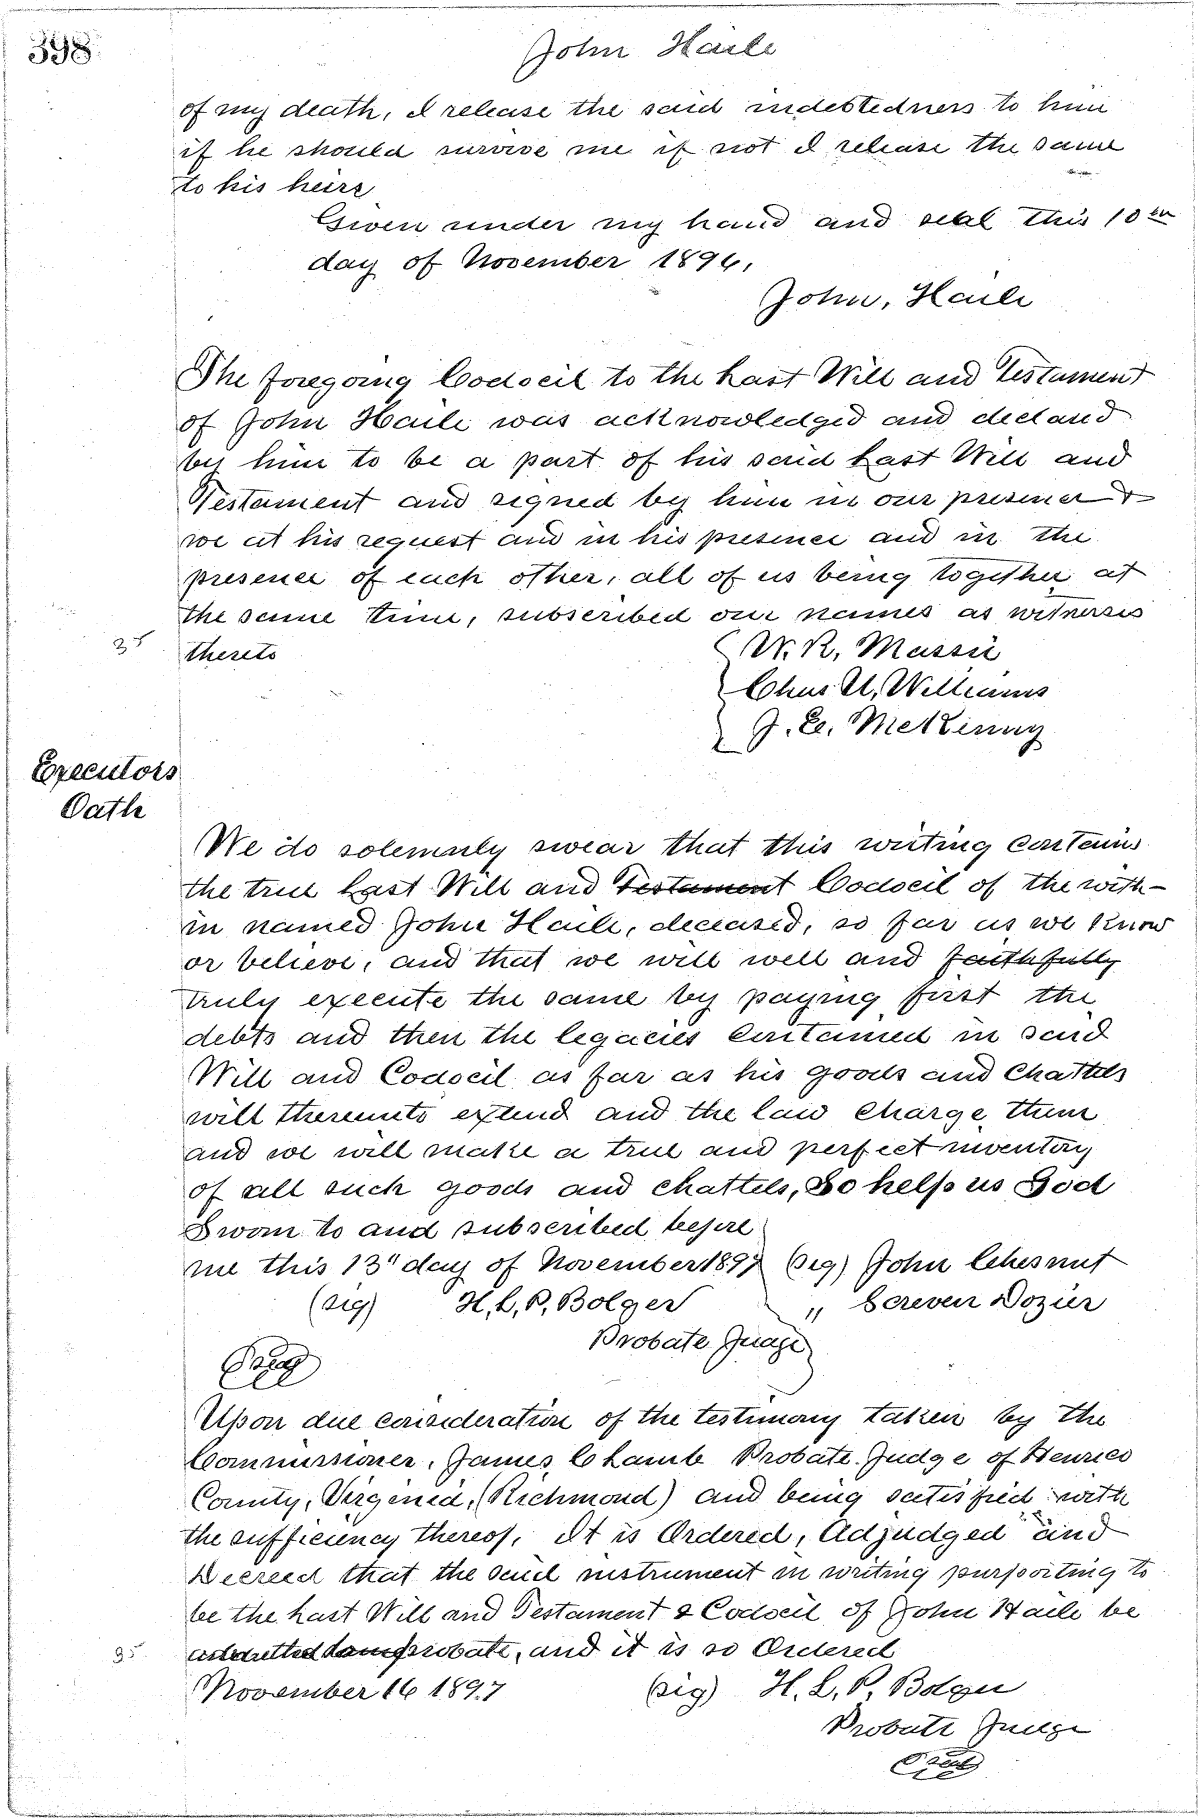 398
John Haile
of my death, I release the said indebtedness to him
if he should survive me if not I release the same
to his heirs
Given under my hand and seal this 10th
day of November 1896,
John, Haile
The foregoing Codocil to the Last Will and Testament
of John Haile was acknowledged and declared
by him to be a part of his said Last Will and
Testament and signed by him in our presence &
we at his request and in his presence and in the
presence of each other, all of us being together at
the same time, subscribed our names as witnesses
35 thereto
W. R. Massie
Chas U. Williams
J. E. McKenny
Executors
Oath
We do solemnly swear that this writing contains
the true Last Will and Testament Codocil of the with-
in named John Haile, deceased, so far as we know
or believe, and that we will well and faithfully
truly execute the same by paying first the
debts and then the legacies contained in said
Will and Codocil as far as his goods and chattels
will thereunto extend and the law charge them
and we will make a true and perfect inventory
of all such goods and chattels, So help us God
Sworn to and subscribed before
me this 13" day of November 1897 (sig) John Chesnut
(sig) H. L. P. Bolger " Screven Dozier
Probate Judge
Seal
Upon due consideration of the testimony taken by the
Commissioner, James C Lamb Probate Judge of Henrico
County, Virginia, (Richmond) and being satisfied with
the sufficiency thereof, It is Ordered, Adjudged and
Decreed that the said instrument in writing purporting to
be the Last Will and Testament & Codocil of John Haile be
35 admitted probate, and it is so Ordered
November 16 1897 (sig) H. L. P. Bolger
Probate Judge
Seal